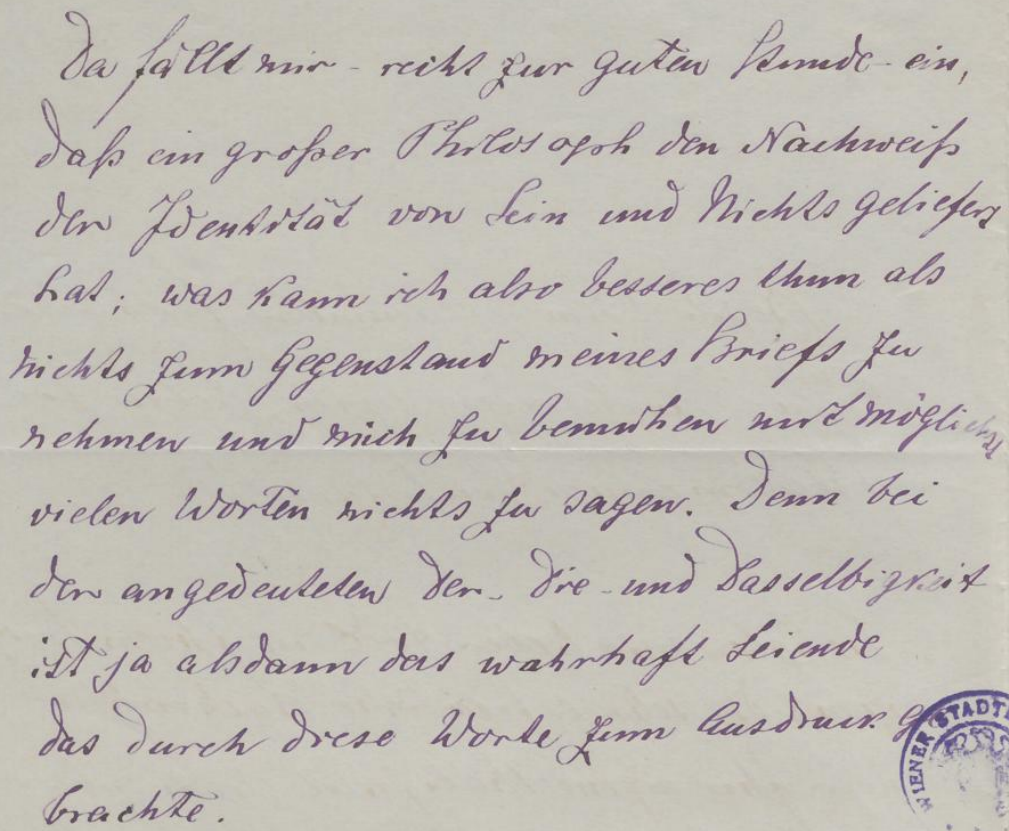 Da fällt mir - recht zur guten Stunde - ein,
daß ein großer Philosoph den Nachweiß
der Identität von Sein und Nichts geliefert
hat; was kann ich also besseres thun als
nichts zum Gegenstand meines Briefs zu
nehmen und mich zu bemühen mit möglichst
vielen Worten nichts zu sagen. Denn bei
der angedeuteten Der- Die- und Dasselbigkeit
ist ja alsdann das wahrhaft Seiende
das durch diese Worte zum Ausdruck ge
brachte.
WIENER STADT